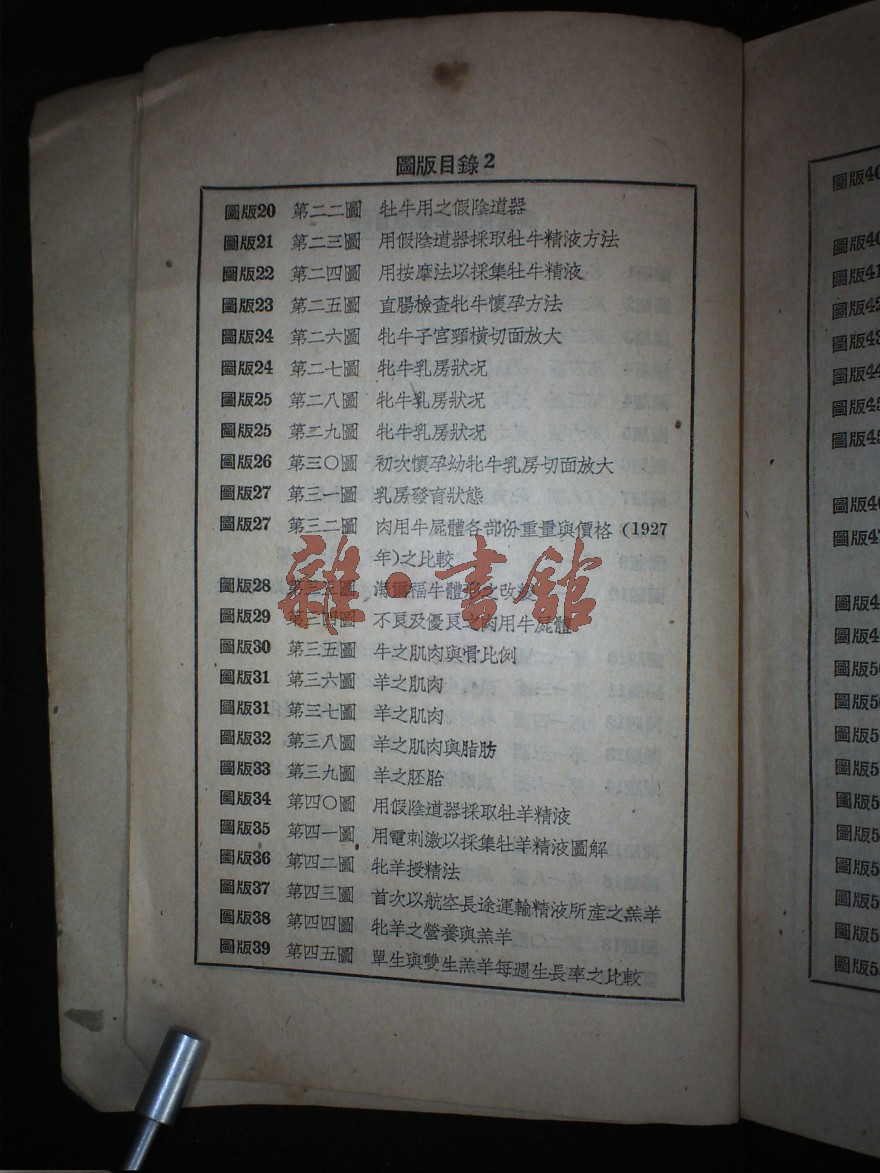 圖版目錄2
圖版20 第二二圖 牡牛用之假陰道器
圖版21 第二三圖 用假陰道器採取牡牛精液方法
圖版22 第二四圖 用按摩法以採集牡牛精液
圖版23 第二五圖 直腸檢查牝牛懷孕方法
圖版24 第二六圖 牝牛子宮頸橫切面放大
圖版24 第二七圖 牝牛乳房狀况
圖版25 第二八圖 牝牛乳房狀况
圖版25 第二九圖 牝牛乳房狀况
圖版26 第三〇圖 初次懷孕幼牝牛乳房切面放大
圖版27 第三一圖 乳房發育狀態
圖版27 第三二圖 肉用牛屍體各部份重量與價格(1927
年)之比較
圖版28 第三三圖 海爾福牛體形之改
圖版29 第三四圖 不良及優良之肉用牛屍體
圖版30 第三五圖 牛之肌肉與骨比例
圖版31 第三六圖 羊之肌肉
圖版31 第三七圖 羊之肌肉
圖版32 第三八圖 羊之肌肉與脂肪
圖版33 第三九圖 羊之胚胎
圖版34 第四〇圖 用假陰道器採取牡羊精液
圖版35 第四一圖 用電刺激以採集牡羊精液圖解
圖版36 第四二圖 牝羊授精法
圖版37 第四三圖 首次以航空長途運輸精液所產之羔羊
圖版38 第四四圖 牝羊之營養與羔羊
圖版39 第四五圖 單生與雙生羔羊每週生長率之比較
雜·書館
圖版40
圖版40
圖版41
圖版42
圖版43
圖版44
圖版45
圖版45
圖版46
圖版47